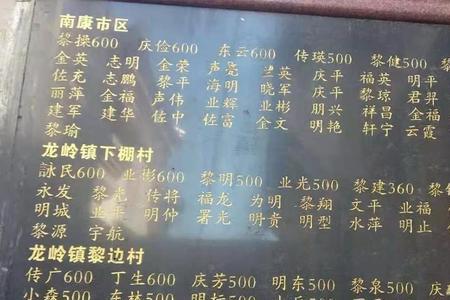 南康市区
黎操600 庆俭600 东云600 传瑛500 黎健500
金英 志明 金荣 声亮 兰英 庆平 福英 明平
佐充 志鹏 黎平 海明 晓军 庆平 黎琼 君昇
丽萍 金福 声伟 业辉 业彬 朋兴 祥昌 金福
建军 建华 佐中 佐富 金文 明艳 轩宁 云霞
黎瑜
龙岭镇下棚村
詠民600 业彬600 黎明500 业光500 黎建360 黎
永发 黎光 传将 福龙 为明 黎翔 文平 业福
明城 业平 明仲 署光 明贵 明型 水萍 明止
黎源 宇航
龙岭镇黎边村
传广600 丁生600 庆芳500 明东500 黎泉500 庆
小森500 东林500